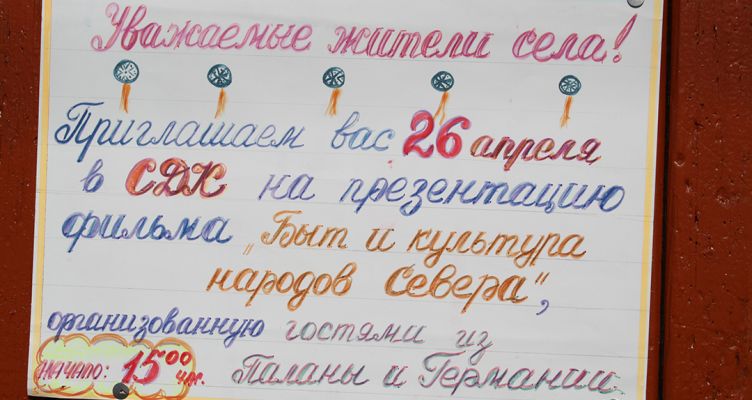 Уважаемые жители села!
Приглашаем вас 26 апреля
в СДК на презентацию
фильма „Быт и культура
народов Севера“,
организованную гостями из
Паланы и Германии
начало: 15⁰⁰ час.